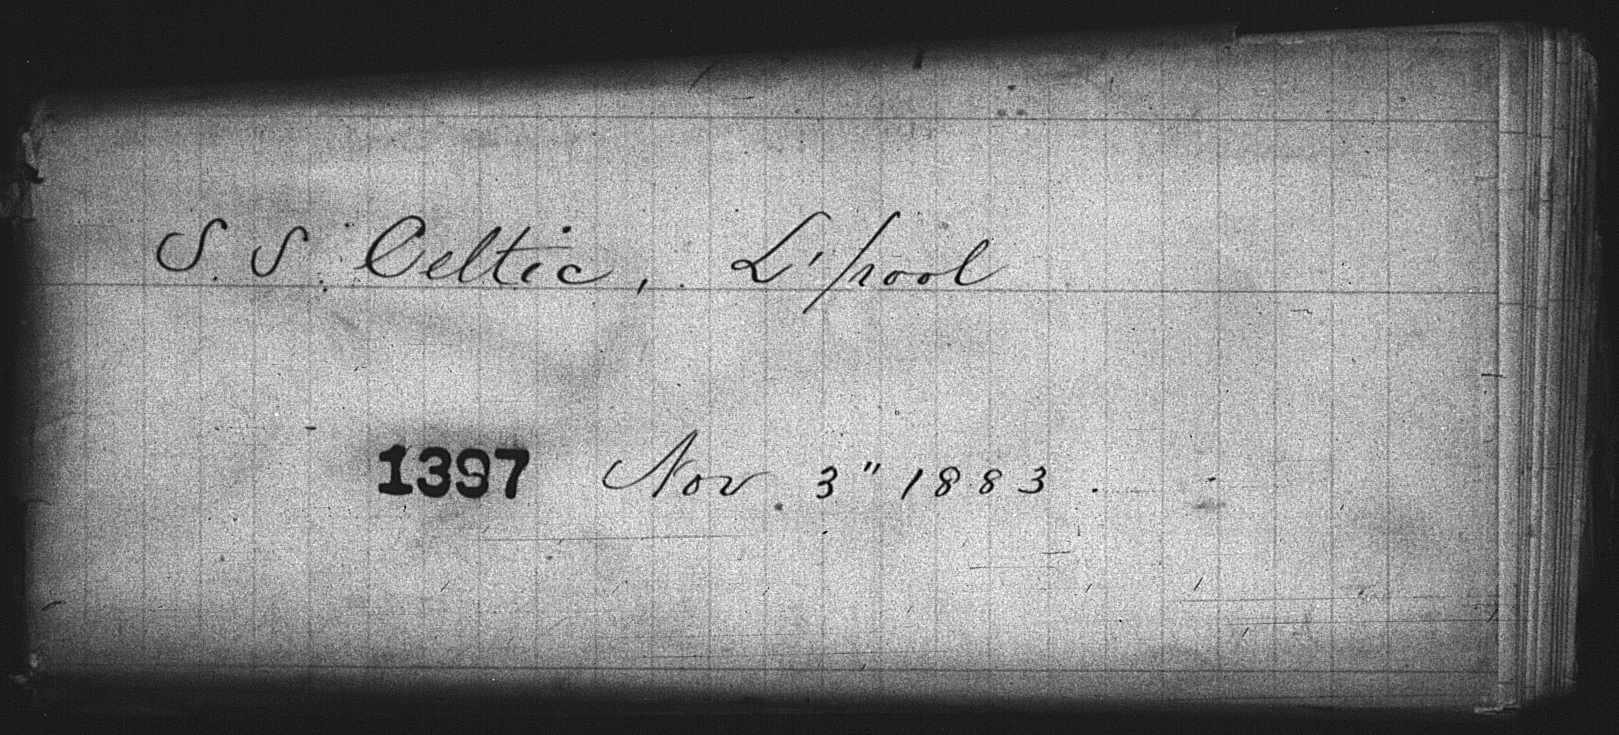 S. S. Celtic, L'pool
1397 Nov. 3" 1883.